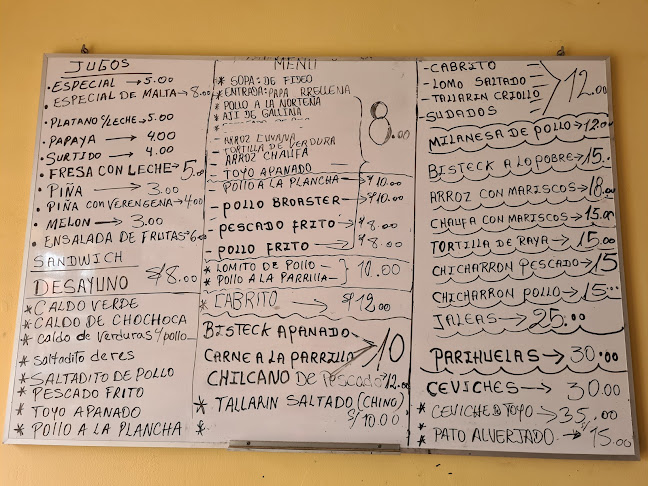 JUGOS
• ESPECIAL → 5.00
• ESPECIAL DE MALTA → 8.00
• PLATANO Y/LECHE → 5.00
• PAPAYA → 4.00
• SURTIDO → 4.00
• FRESA CON LECHE → 5.00
• PIÑA → 3.00
• PIÑA CON VERENGENA → 4.00
• MELON → 3.00
• ENSALADA DE FRUTAS → 6.00
SANDWICH
DESAYUNO S/8.00
* CALDO VERDE
* CALDO DE CHOCHOCA
* caldo de verduras y pollo
* saltadito de res
* SALTADITO DE POLLO
* PESCADO FRITO
* TOYO APANADO
* POLLO A LA PLANCHA
MENU
* SOPA: DE FIDEO
* ENTRADA: PAPA RRELLENA
* POLLO A LA NORTEÑA
* AJI DE GALLINA
8.00
- TORTILLA DE VERDURA
ARROZ CHAUFA
- TOYO APANADO
- POLLO A LA PLANCHA → S/10.00
- POLLO BROASTER → S/10.00
- PESCADO FRITO → S/8.00
- POLLO FRITO → S/8.00
* LOMITO DE POLLO -
* POLLO A LA PARRILLA - 10.00
* CABRITO → S/12.00
BISTECK APANADO
CARNE A LA PARRILLA 10
CHILCANO DE Pescado → 12.00
* TALLARIN SALTADO (CHINO)
S/10.00
*
- CABRITO
- LOMO SALTADO
- TALLARIN CRIOLLO
- SUDADOS
12.00
MILANESA DE POLLO → 12.00
BISTECK A LO POBRE → 15.00
ARROZ CON MARISCOS → 18.00
CHAUFA CON MARISCOS → 15.00
TORTILLA DE RAYA → 15.00
CHICHARRON PESCADO → 15
CHICHARRON POLLO → 15.00
JALEAS → 25.00
PARIHUELAS → 30.00
CEVICHES → 30.00
* CEVICHE D TOYO → 35.00
* PATO ALVERJADO → 15.00